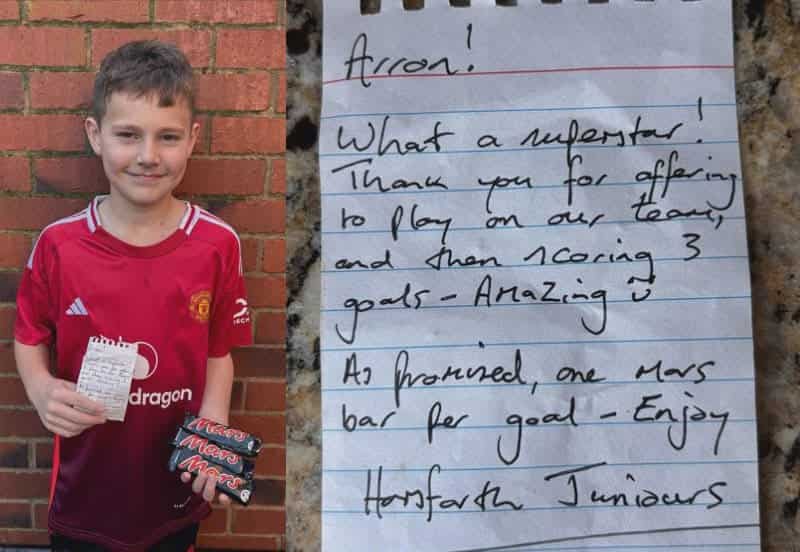 TECH
dragon
Mars
Mars
Mars
Arron!
What a superstar!
Thank you for offering
to play on our team,
and then scoring 3
goals - AmaZing
As promised, one Mars
bar per goal - Enjoy
Horsforth Juniours